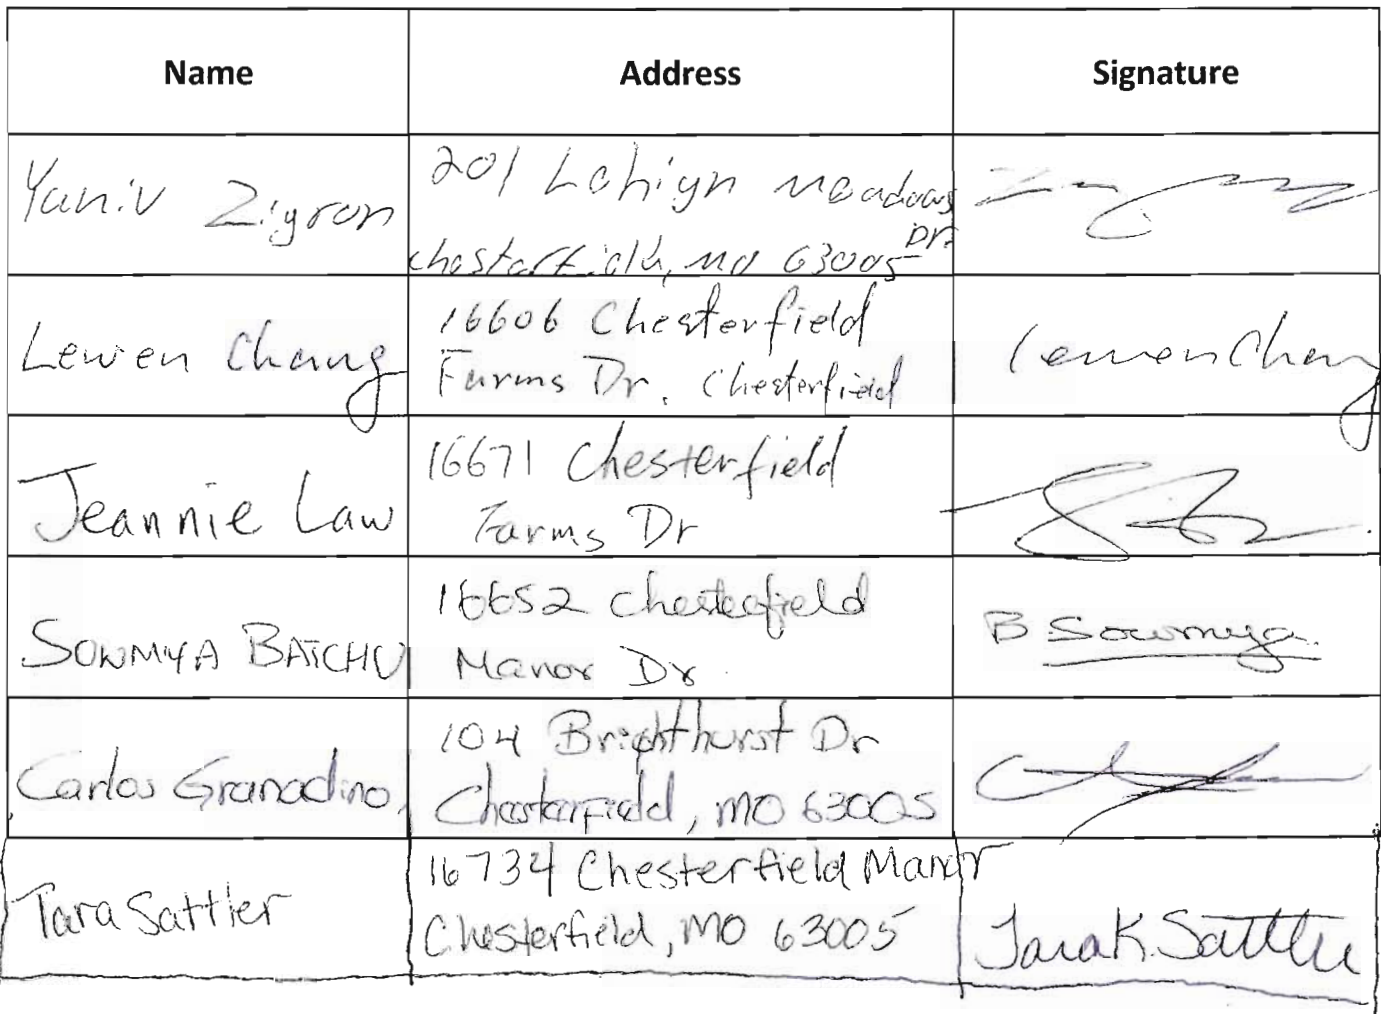 Name Address Signature
Yaniv Zigron
201 Lehigh meadows
Dr.
chesterfield, mo 63005
Lewen Chang
16606 Chesterfield
Farms Dr. Chesterfield
Lewen Chang
Jeannie Law
16671 Chesterfield
Farms Dr
SOWMYA BATCHU
16652 Chesterfield
Manor Dr.
B Sowmya
Carlos Granadino
104 Brighthurst Dr
Chesterfield, MO 63005
Tara Sattler
16734 Chesterfield Manor
Chesterfield, MO 63005
Tara K. Sattler